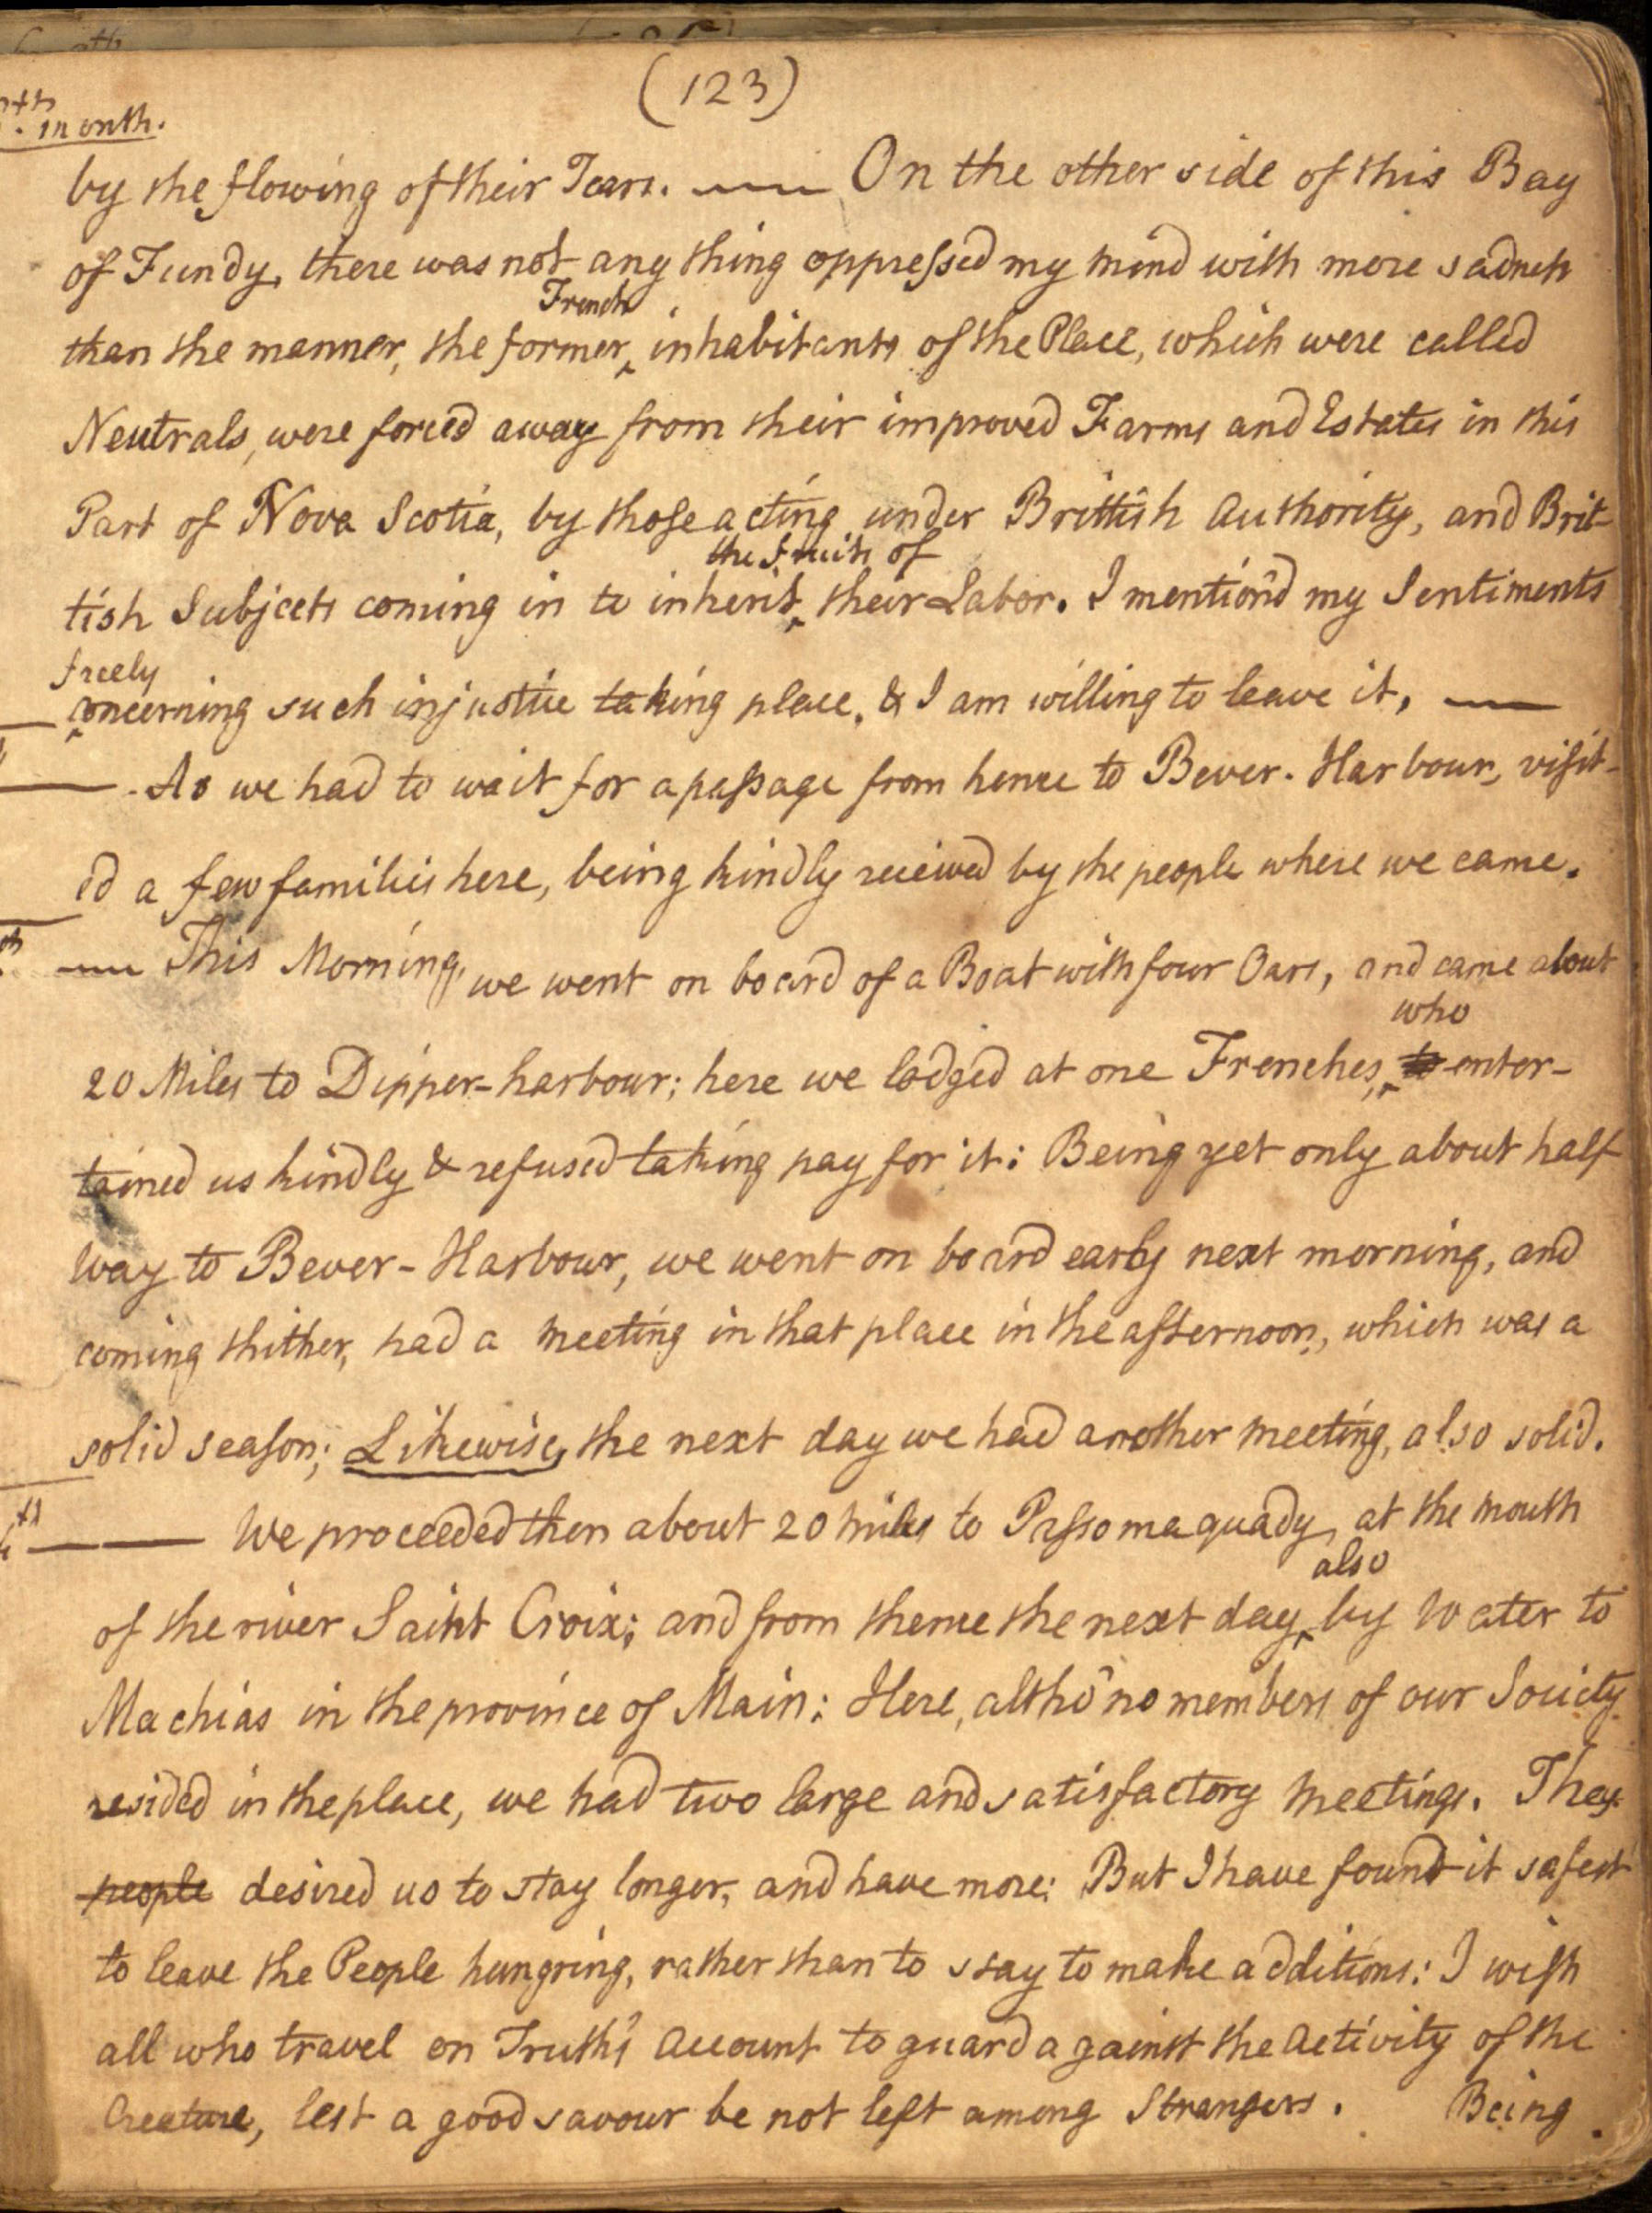 (123)
month.
by the flowing of their Tears. —— On the other side of this Bay
of Fundy, there was not any thing oppressed my mind with more sadness
French
than the manner, the former ‸ inhabitants of the Place, which were called
Neutrals, were forced away from their improved Farms and Estates in this
Part of Nova Scotia, by those acting under Brittish Authority, and Brit-
the fruits of
tish Subjects coming in to inherit ‸ their Labor. I mention'd my Sentiments
freely
‸ concerning such injustice taking place, & I am willing to leave it, ——
—— As we had to wait for a passage from hence to Bever-Harbour, visit-
ed a few families here, being kindly received by the people where we came.
—— This Morning, we went on board of a Boat with four Oars, and came about
who
20 Miles to Dipper-harbour; here we lodged at one Frenches, ‸ to enter-
tained us kindly & refused taking pay for it: Being yet only about half
way to Bever-Harbour, we went on board early next morning, and
coming thither, had a meeting in that place in the afternoon, which was a
solid season; Likewise, the next day we had another meeting, also solid.
—— We proceeded then about 20 miles to Passomaquady, at the mouth
also
of the river Saint Croix; and from thence the next day ‸ by Water to
Machias in the province of Main: Here, altho' no members of our Society
resided in the place, we had two large and satisfactory meetings. They
people desired us to stay longer, and have more: But I have found it safest
to leave the People hungring, rather than to stay to make additions: I wish
all who travel on Truth's Account to guard against the Activity of the
Creature, lest a good savour be not left among Strangers. Being